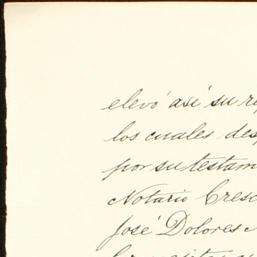 elevó así su re
los cuales des
por su testam
Notario Cresc
José Dolores